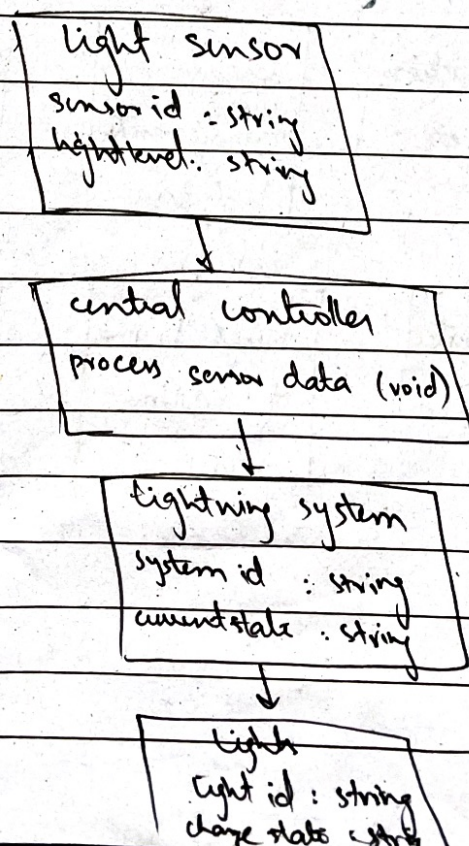 light sensor
sensor id : string
lightlevel : string
central controller
process sensor data (void)
lightning system
system id : string
current state : string
light
light id : string
change state :